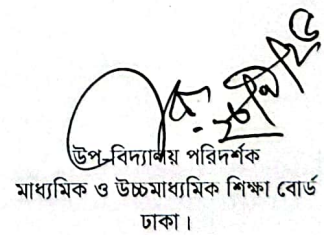 উপ-বিদ্যালয় পরিদর্শক
মাধ্যমিক ও উচ্চমাধ্যমিক শিক্ষা বোর্ড
ঢাকা।